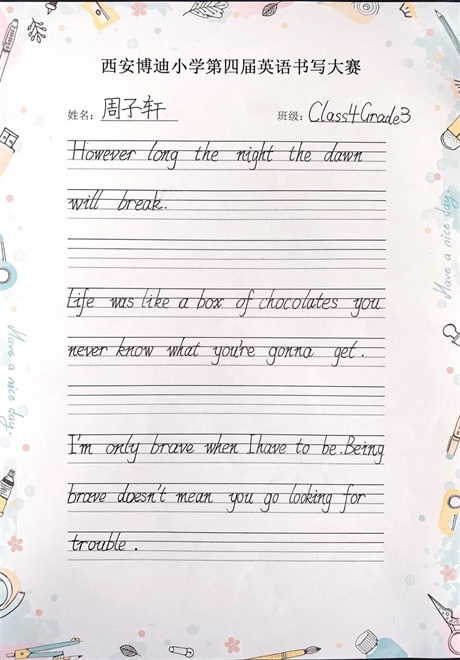 西安博迪小学第四届英语书写大赛
姓名：周子轩 班级：Class4Grade3
However long the night the dawn
will break.
Life was like a box of chocolates you
never know what you're gonna get.
I'm only brave when I have to be.Being
brave doesn't mean you go looking for
trouble.
Have a nice day.
Have a nice day.